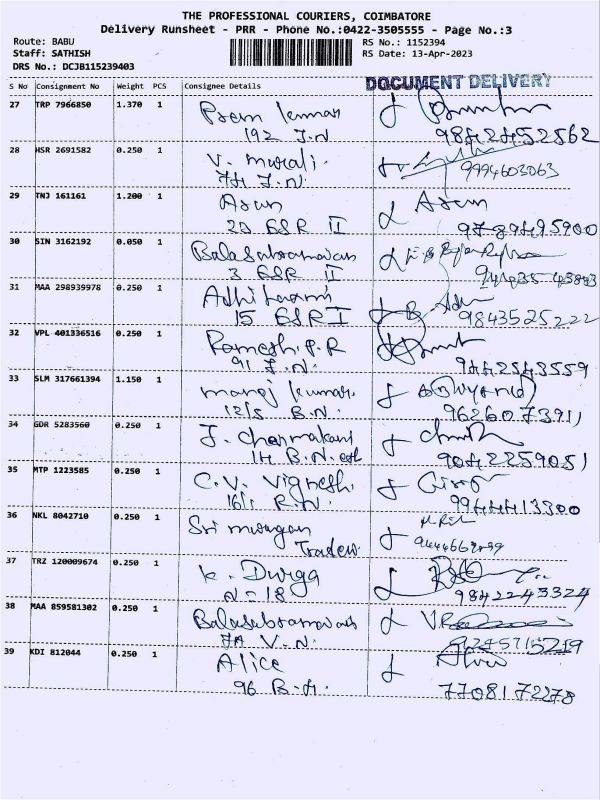 THE PROFESSIONAL COURIERS, COIMBATORE
Delivery Runsheet - PRR - Phone No.:0422-3505555 - Page No.:3
Route: BABU RS No.: 1152394
Staff: SATHISH RS Date: 13-Apr-2023
DRS No.: DCJB115239403
DOCUMENT DELIVERY
S No Consignment No Weight PCS Consignee Details
27 TRP 7966850 1.370 1 Prem kumar
192 J.N 9842452562
28 HSR 2691582 0.250 1 V. Murali.
74 J.N. 9994603063
29 TNJ 161161 1.200 1 Arun Arun
20 GSR II 9789495900
30 SIN 3162192 0.050 1 Balasubramanian
3 GSR II
31 MAA 298939978 0.250 1
15 GSR I 9843525222
32 VPL 401336516 0.250 1 Ramesh.P.R
91 J.N. 9442543559
33 SLM 317661394 1.150 1 Manoj kumar.
12/5 B.N. 9626073911
34 GDR 5283560 0.250 1 J.
14 B.N. 9042259051
35 MTP 1223585 0.250 1 C.V. Vignesh.
16/1 R.N. 9944413300
36 NKL 8042710 0.250 1 Sri murugan
Traders
37 TRZ 120009674 0.250 1 K. Durga
N-18 9842243324
38 MAA 859581302 0.250 1 Balasubramanian
7A V.N. 9245715219
39 KDI 812044 0.250 1 Alice
96 B.H. 7708172278